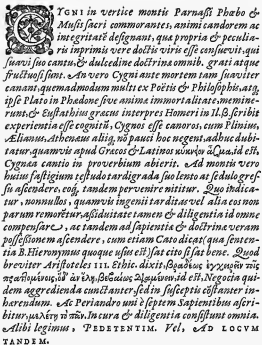 CYGNI in vertice montis Parnasi Phœbo &
Musis sacri commorantes, animi candorem ac
integritatē designant, quæ propria & peculia-
ris inprimis vere doctis viris esse consuevit, qui
suavi suo cantu, & dulcedine doctrinæ omnib. grati atque
fructuosi sunt. An vero Cygni ante mortem tam suaviter
canant, quemadmodum multi ex Poëtis & Philosophis, atq́;
ipse Plato in Phædone sive anima immortalitate, memine-
runt, & Eustathius græcus interpres Homeri in Il. β. scribit
experientia esse cognitū, Cygnos esse canoros, cum Plinius,
Ælianus, Athenæus aliiq́; nō pauci hoc negent, adhuc dubi-
tatur, quamvis apud Græcos & Latinos
Cygnea cantio in proverbium abierit. Ad montis vero
huius fastigium testudo tardigrada suo lento at sedulo gres-
su ascendere, eoq́; tandem pervenire nititur. Quo indica-
tur, nonnullos, quamvis ingenii tarditas vel alia eos non
parum remoretur, assiduitate tamen & diligentia id omne
compensare, ac tandem ad sapientiæ & doctrinæ veram
possessionem ascendere, cum etiam Cato dicat (quæ senten-
tia B. Hieronymus quoque usus est) sat cito si sat bene. Quod
breviter Aristoteles III. Ethic. dixit,
id est, Negocia qui-
dem aggredienda cunctanter, sed in susceptis cōstanter in-
hærendum. Ac Periandro uni è septem Sapientibus ascri-
bitur, Incura & diligentia consistunt omnia.
Alibi legimus, PEDETENTIM. Vel, AD LOCVM
TANDEM.